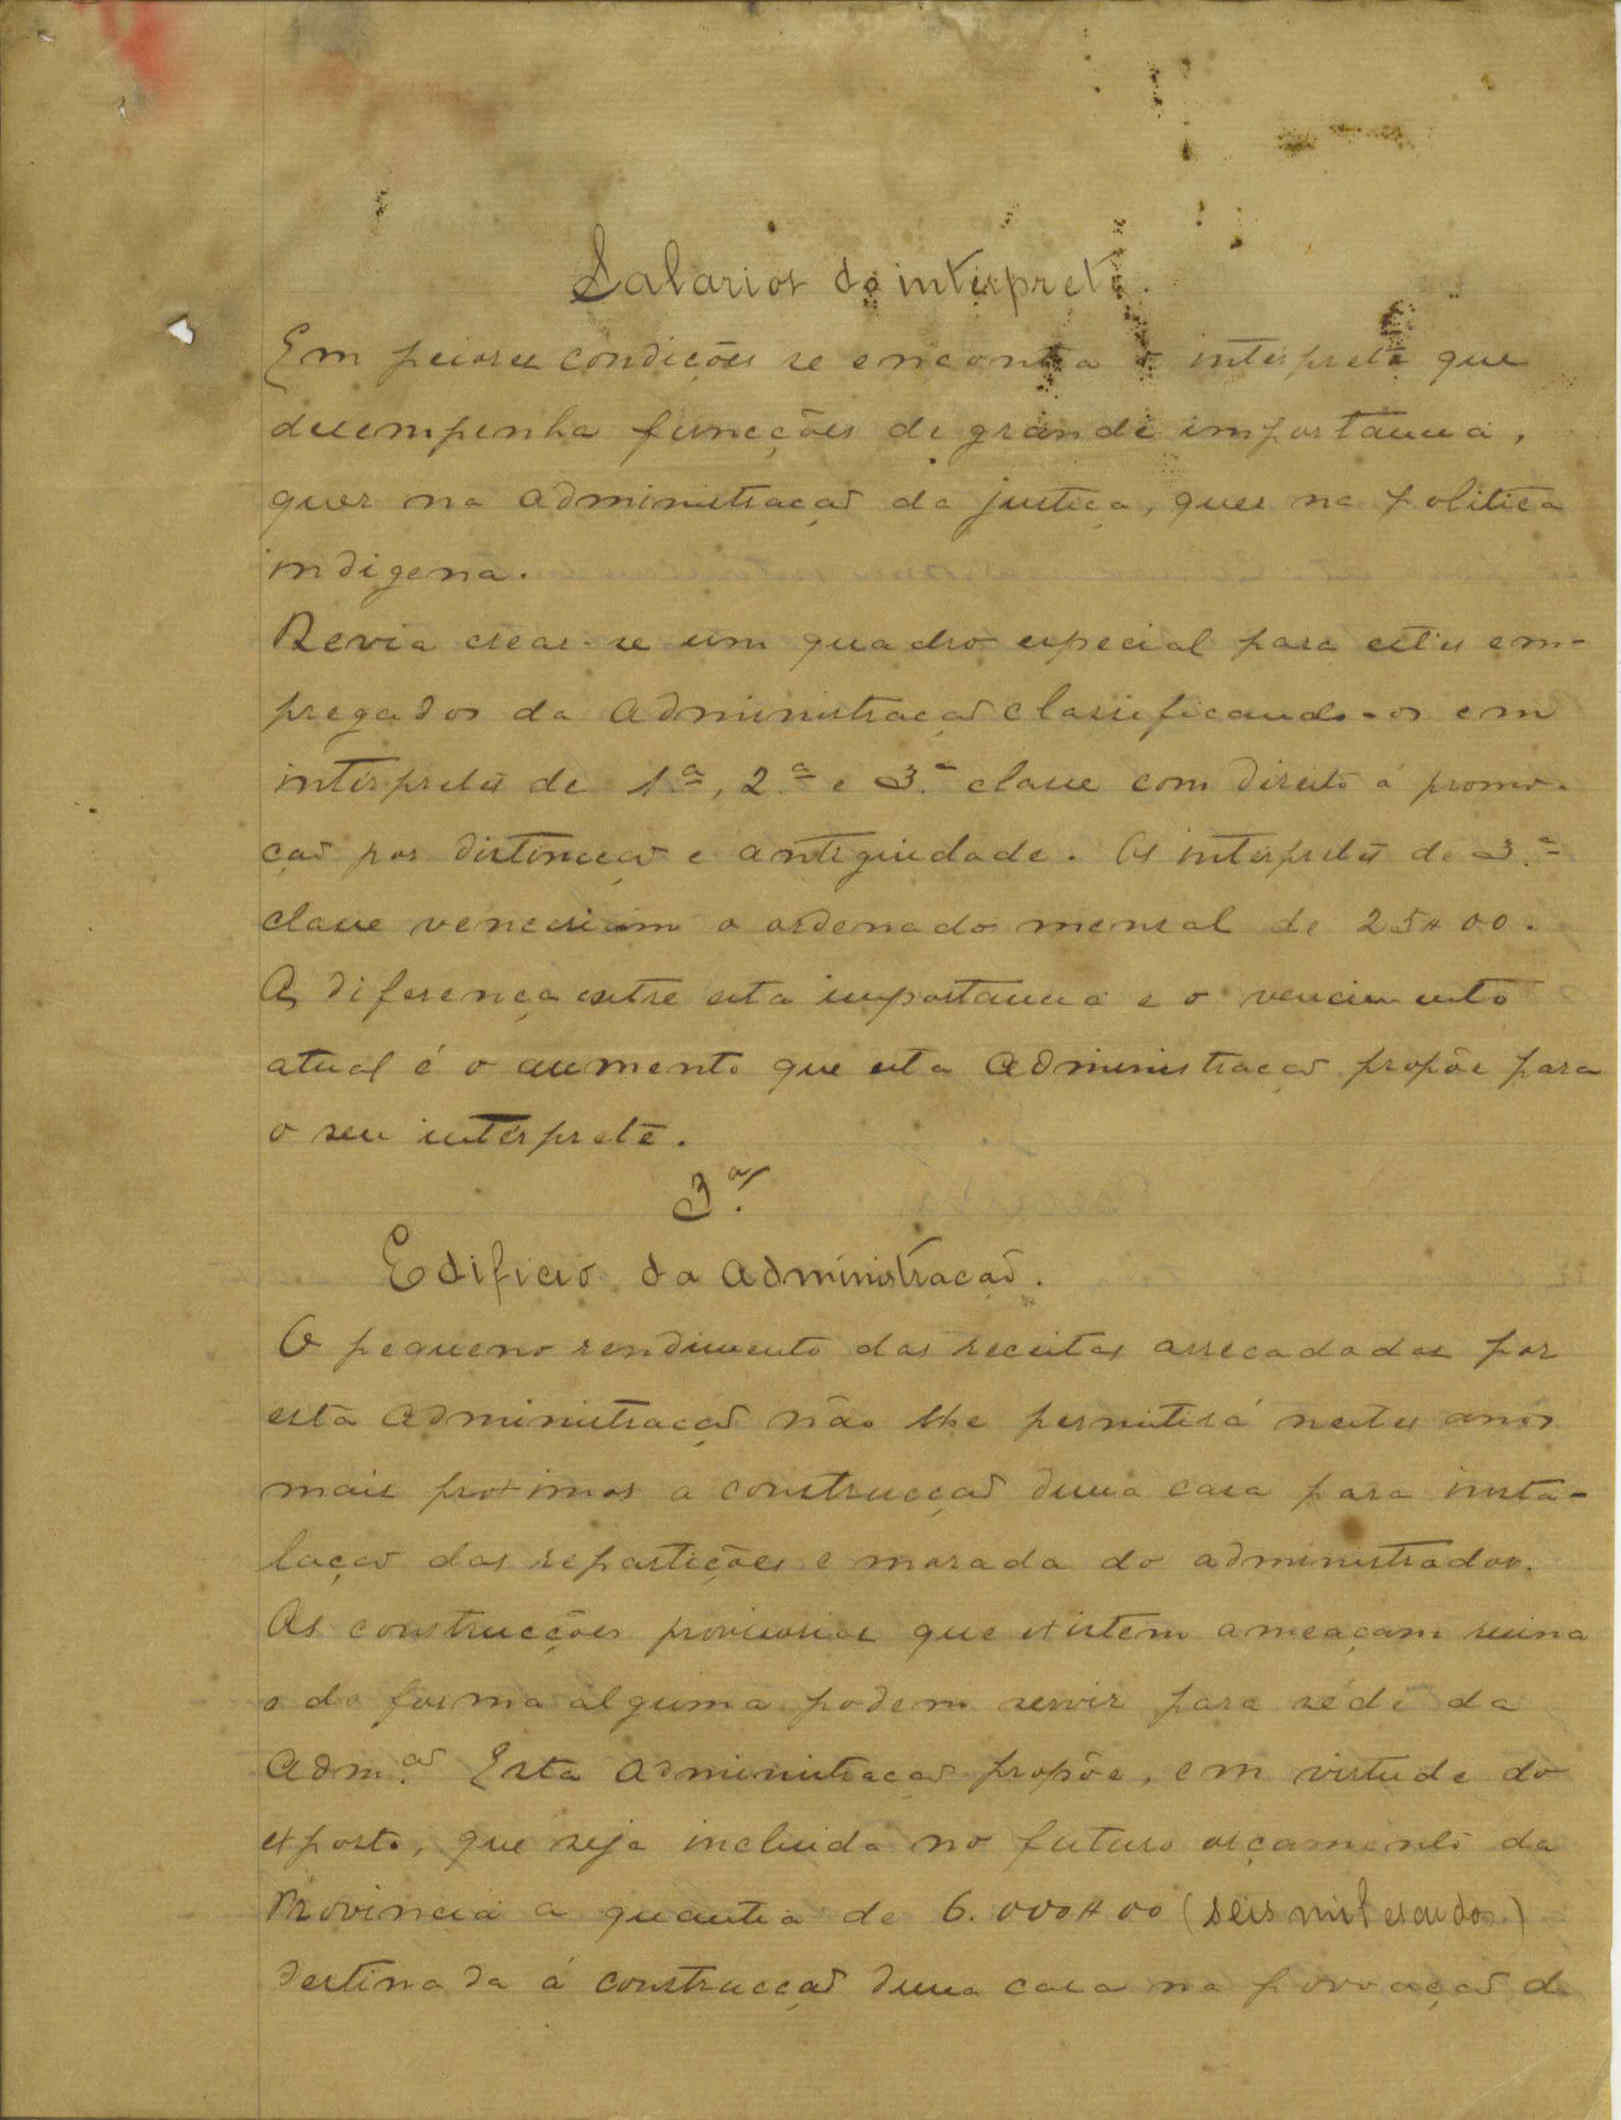 Salarios do interprete.
Em peiores condições se encontra o interprete que
desempenha funcções de grande importancia,
quer na administração da justiça, quer na politica
indigena.
Devia crear-se um quadro especial para estes em-
pregados da administração classificando-os em
interpretes de 1.ª, 2.ª e 3.ª classe com direito á promo-
ção por distincção e antiguidade. Os interpretes de 3.ª
classe venceriam o ordenado mensal de 25$00.
A diferença entre esta importancia e o vencimento
atual é o aumento que esta administração propõe para
o seu interprete.
3.º
Edificio da administração.
O pequeno rendimento das receitas arrecadadas por
esta administração não lhe permitirá nestes anos
mais proximos a construcção duma casa para insta-
lação das repartições e morada do administrador.
As construcções provisorias que existem ameaçam ruina
e de forma alguma podem servir para séde da
Adm.ão Esta administração propõe, em virtude do
exposto, que seja incluida no futuro orçamento da
Provincia a quantia de 6.000$00 (seis mil escudos)
destinada á construcção duma casa na povoação de